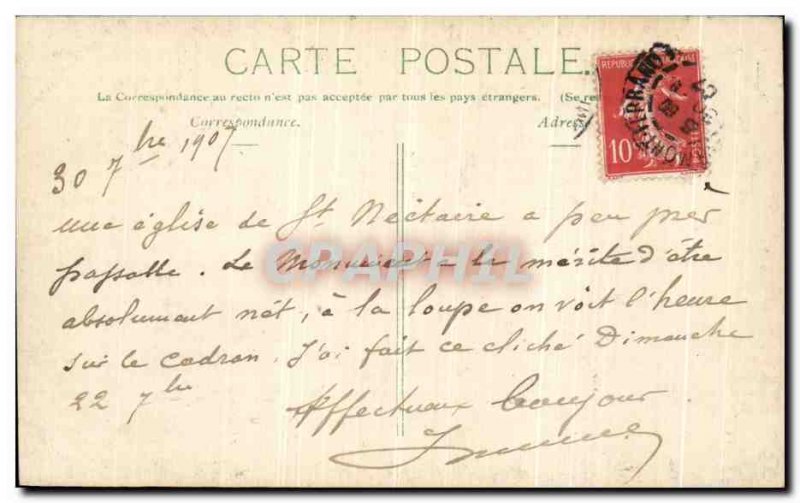 CARTE POSTALE
La Correspondance au recto n'est pas acceptée par tous les pays étrangers. (Se re
Correspondance.
Adres
REPUBLIQUE
10
POSTES
30 7bre 1907
une église de St. Nectaire a peu près
passable. Le Monument a le mérite d'être
absolument net, à la loupe on voit l'heure
sur le cadran. J'ai fait ce cliché Dimanche
22 7bre
Affectueux bonjour
CPAPHIL